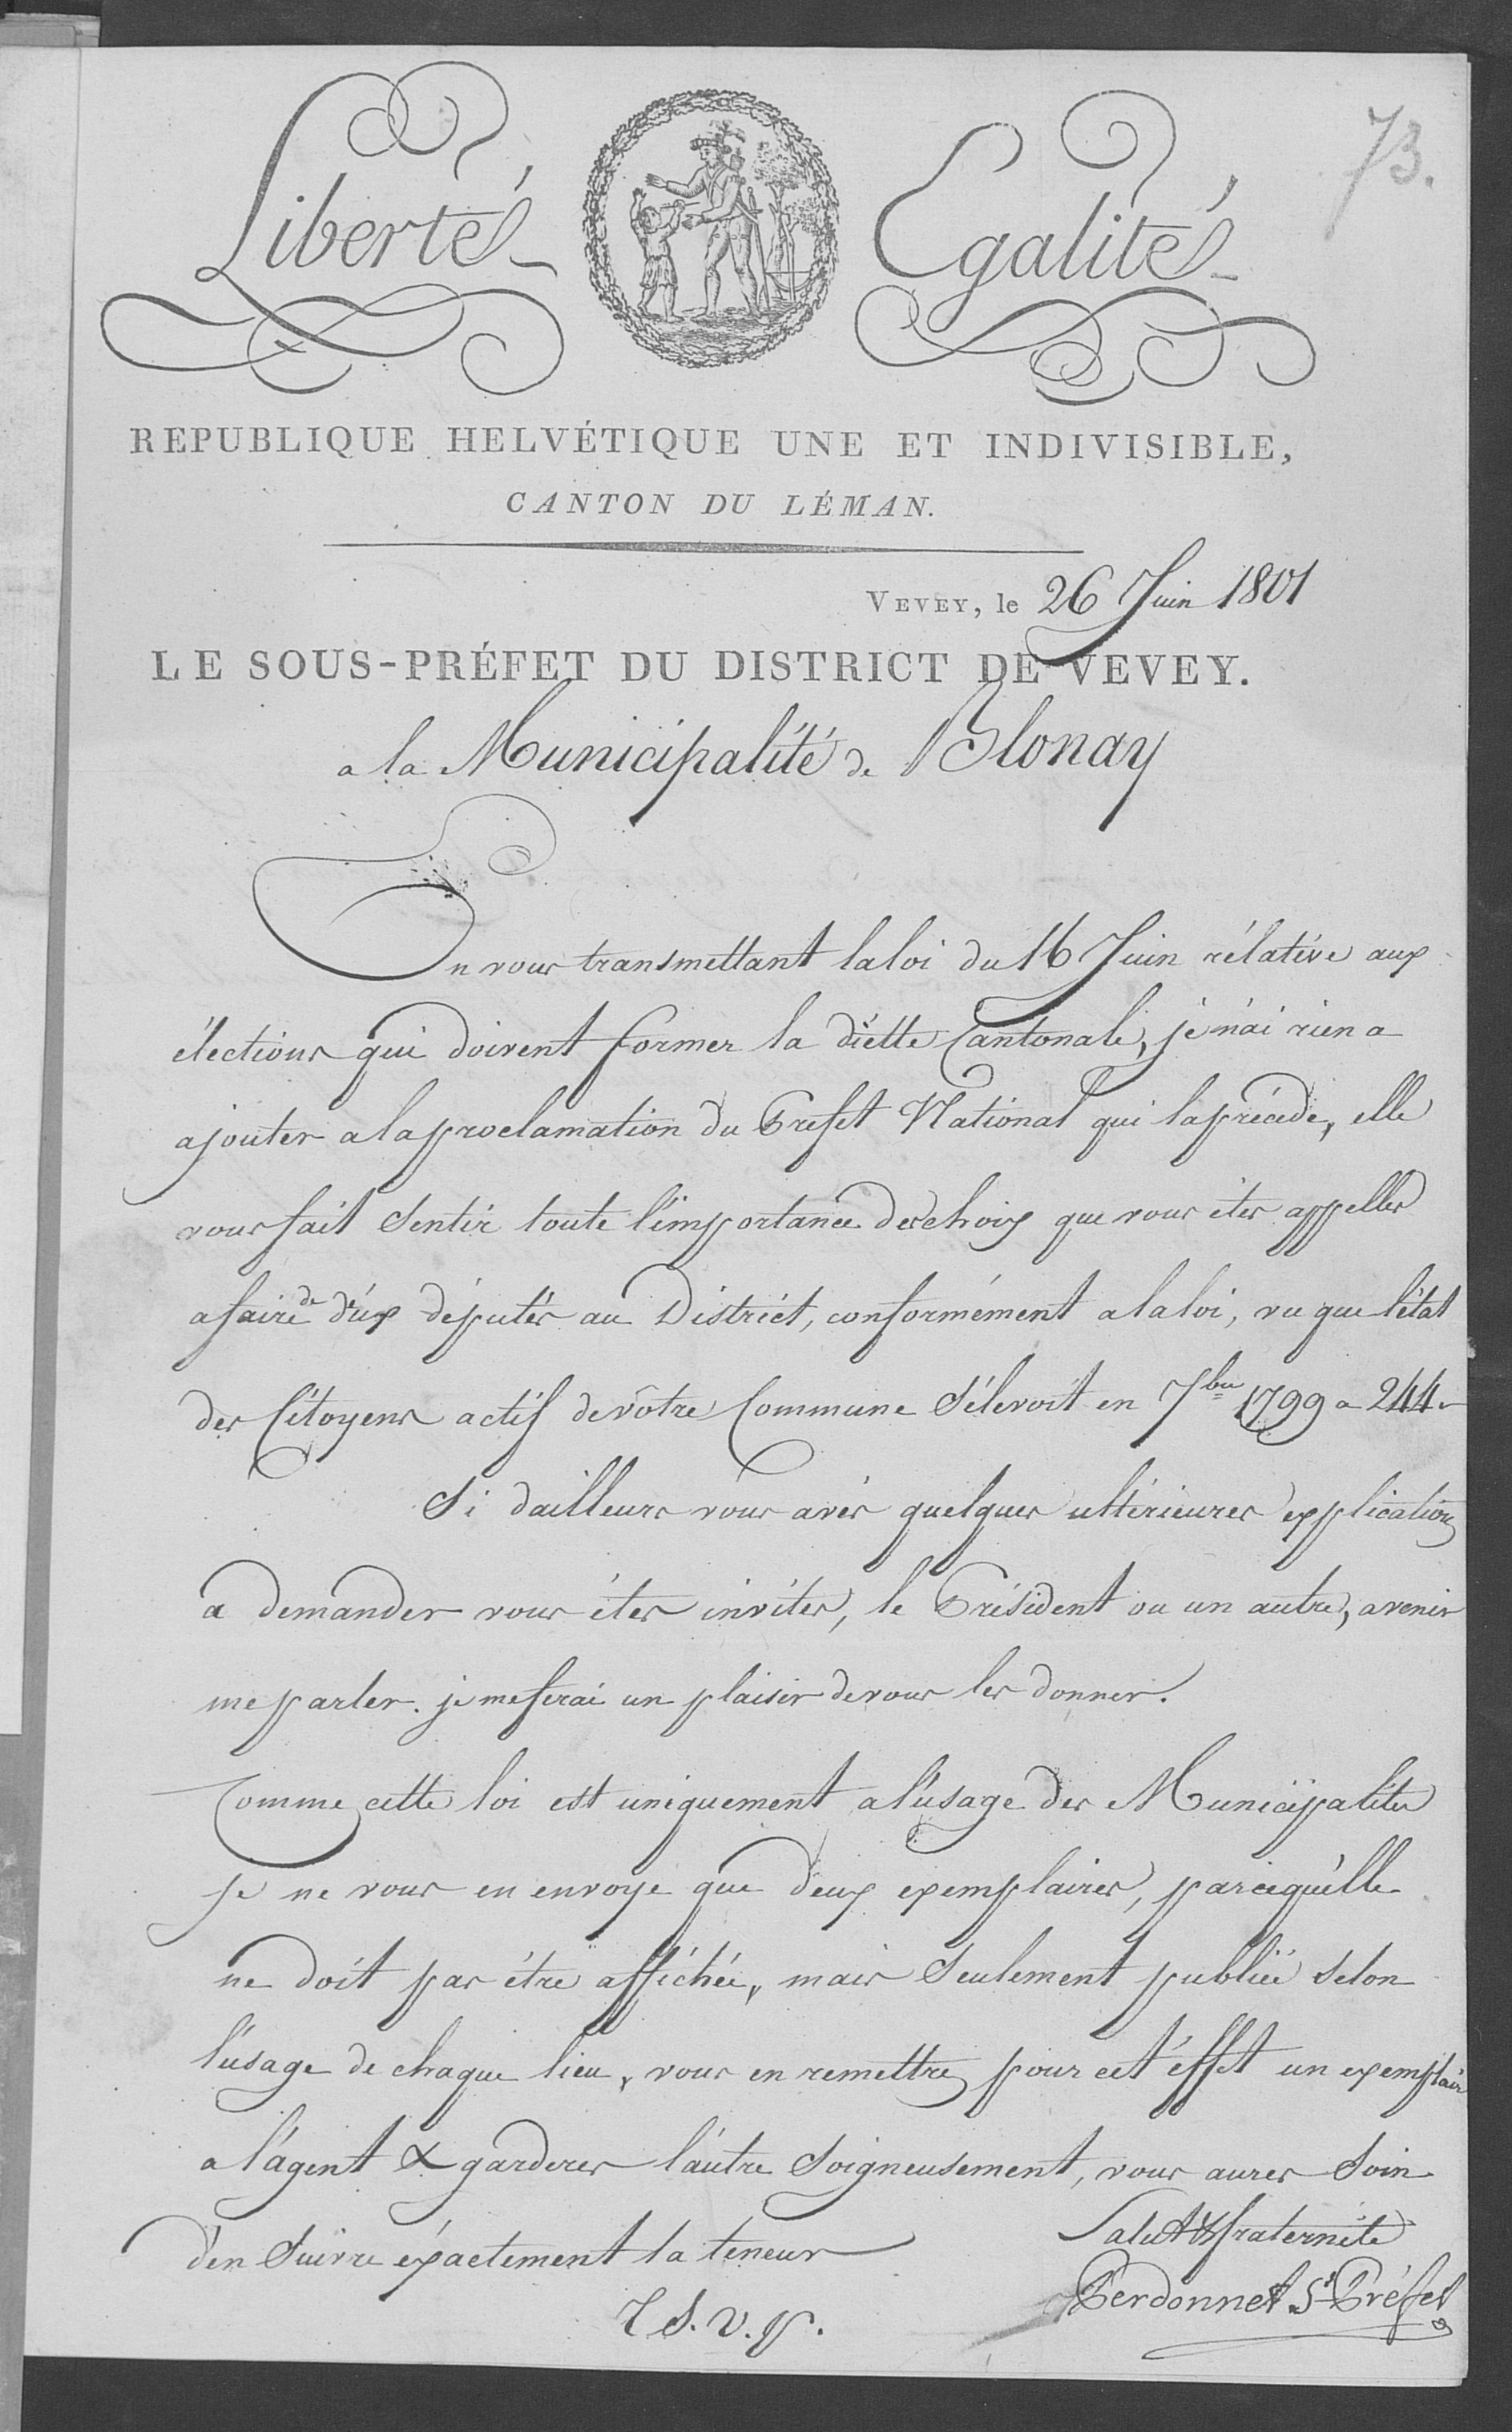 Liberté Egalité
73.
REPUBLIQUE HELVÉTIQUE UNE ET INDIVISIBLE,
CANTON DU LÉMAN.
VEVEY, le 26 Juin 1801
LE SOUS-PRÉFET DU DISTRICT DE VEVEY.
a la Municipalité de Blonay
En vous transmettant la loi du 16 Juin rélative aux
élections qui doivent former la diette Cantonale, je n'ai rien a
ajouter a la proclamation du Prefet National qui la précéde, elle
vous fait sentir toute l'importance des choix que vous étes appellés
a faire de deux députés au District, conformément a la loi, vu que l'état
des Citoyens actif de vôtre Commune s'élevoit en 7bre 1799 a 244.
Si dailleurs vous avés quelques ultérieures explications
a demander vous étes invités, le Président ou un autre, a venir
me parler. je me ferai un plaisir de vous les donner.
Comme cette loi est uniquement a l'usage des Municipalités
je ne vous en envoye que deux exemplaires, parcequ'elle
ne doit pas étre affichée, mais seulement publiée selon
l'usage de chaque lieu, vous en remettrez pour cet éffet un exemplaire
a l'agent & garderes l'autre soigneusement, vous aures soin
d'en suivre éxactement la teneur
Salut & fraternité
Perdonnet St Préfet
T. S. V. P.